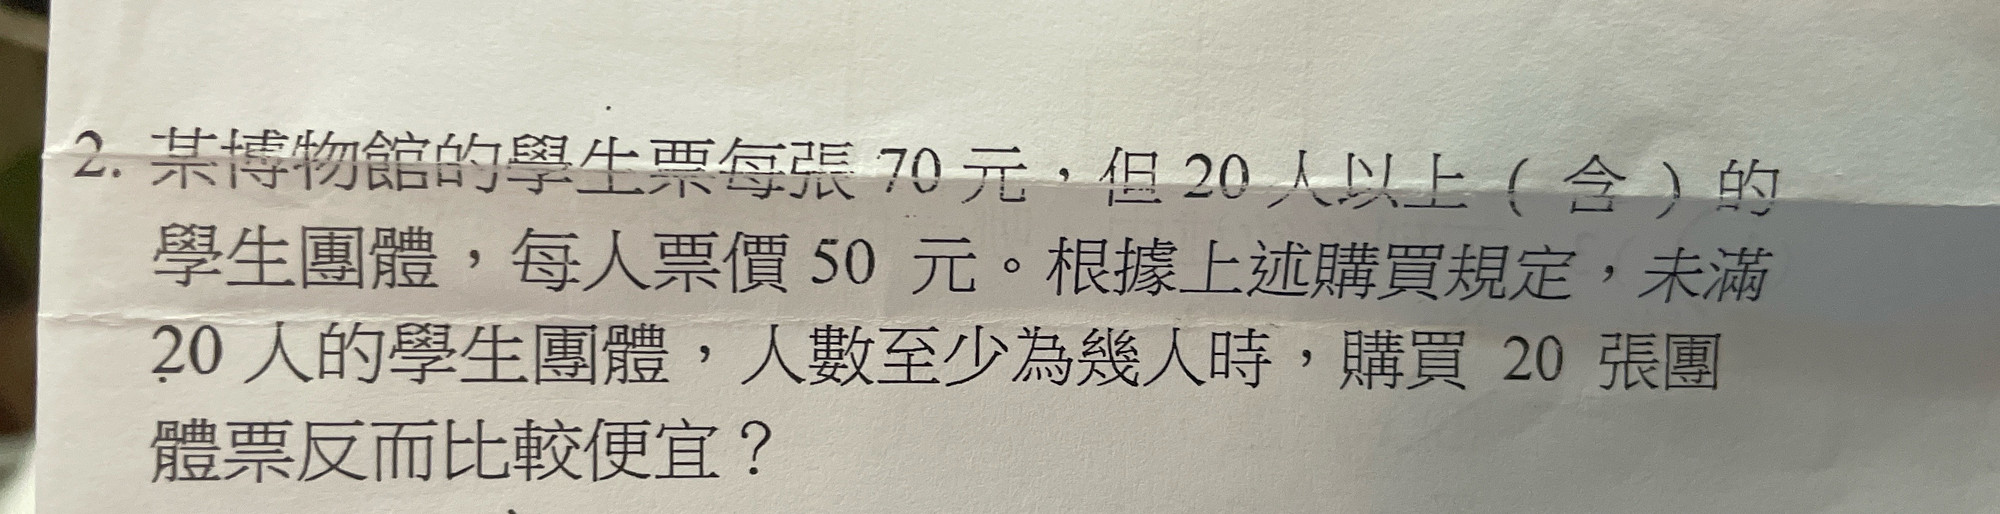 2. 某博物館的學生票每張 70 元，但 20 人以上（含）的
學生團體，每人票價 50 元。根據上述購買規定，未滿
20 人的學生團體，人數至少為幾人時，購買 20 張團
體票反而比較便宜？